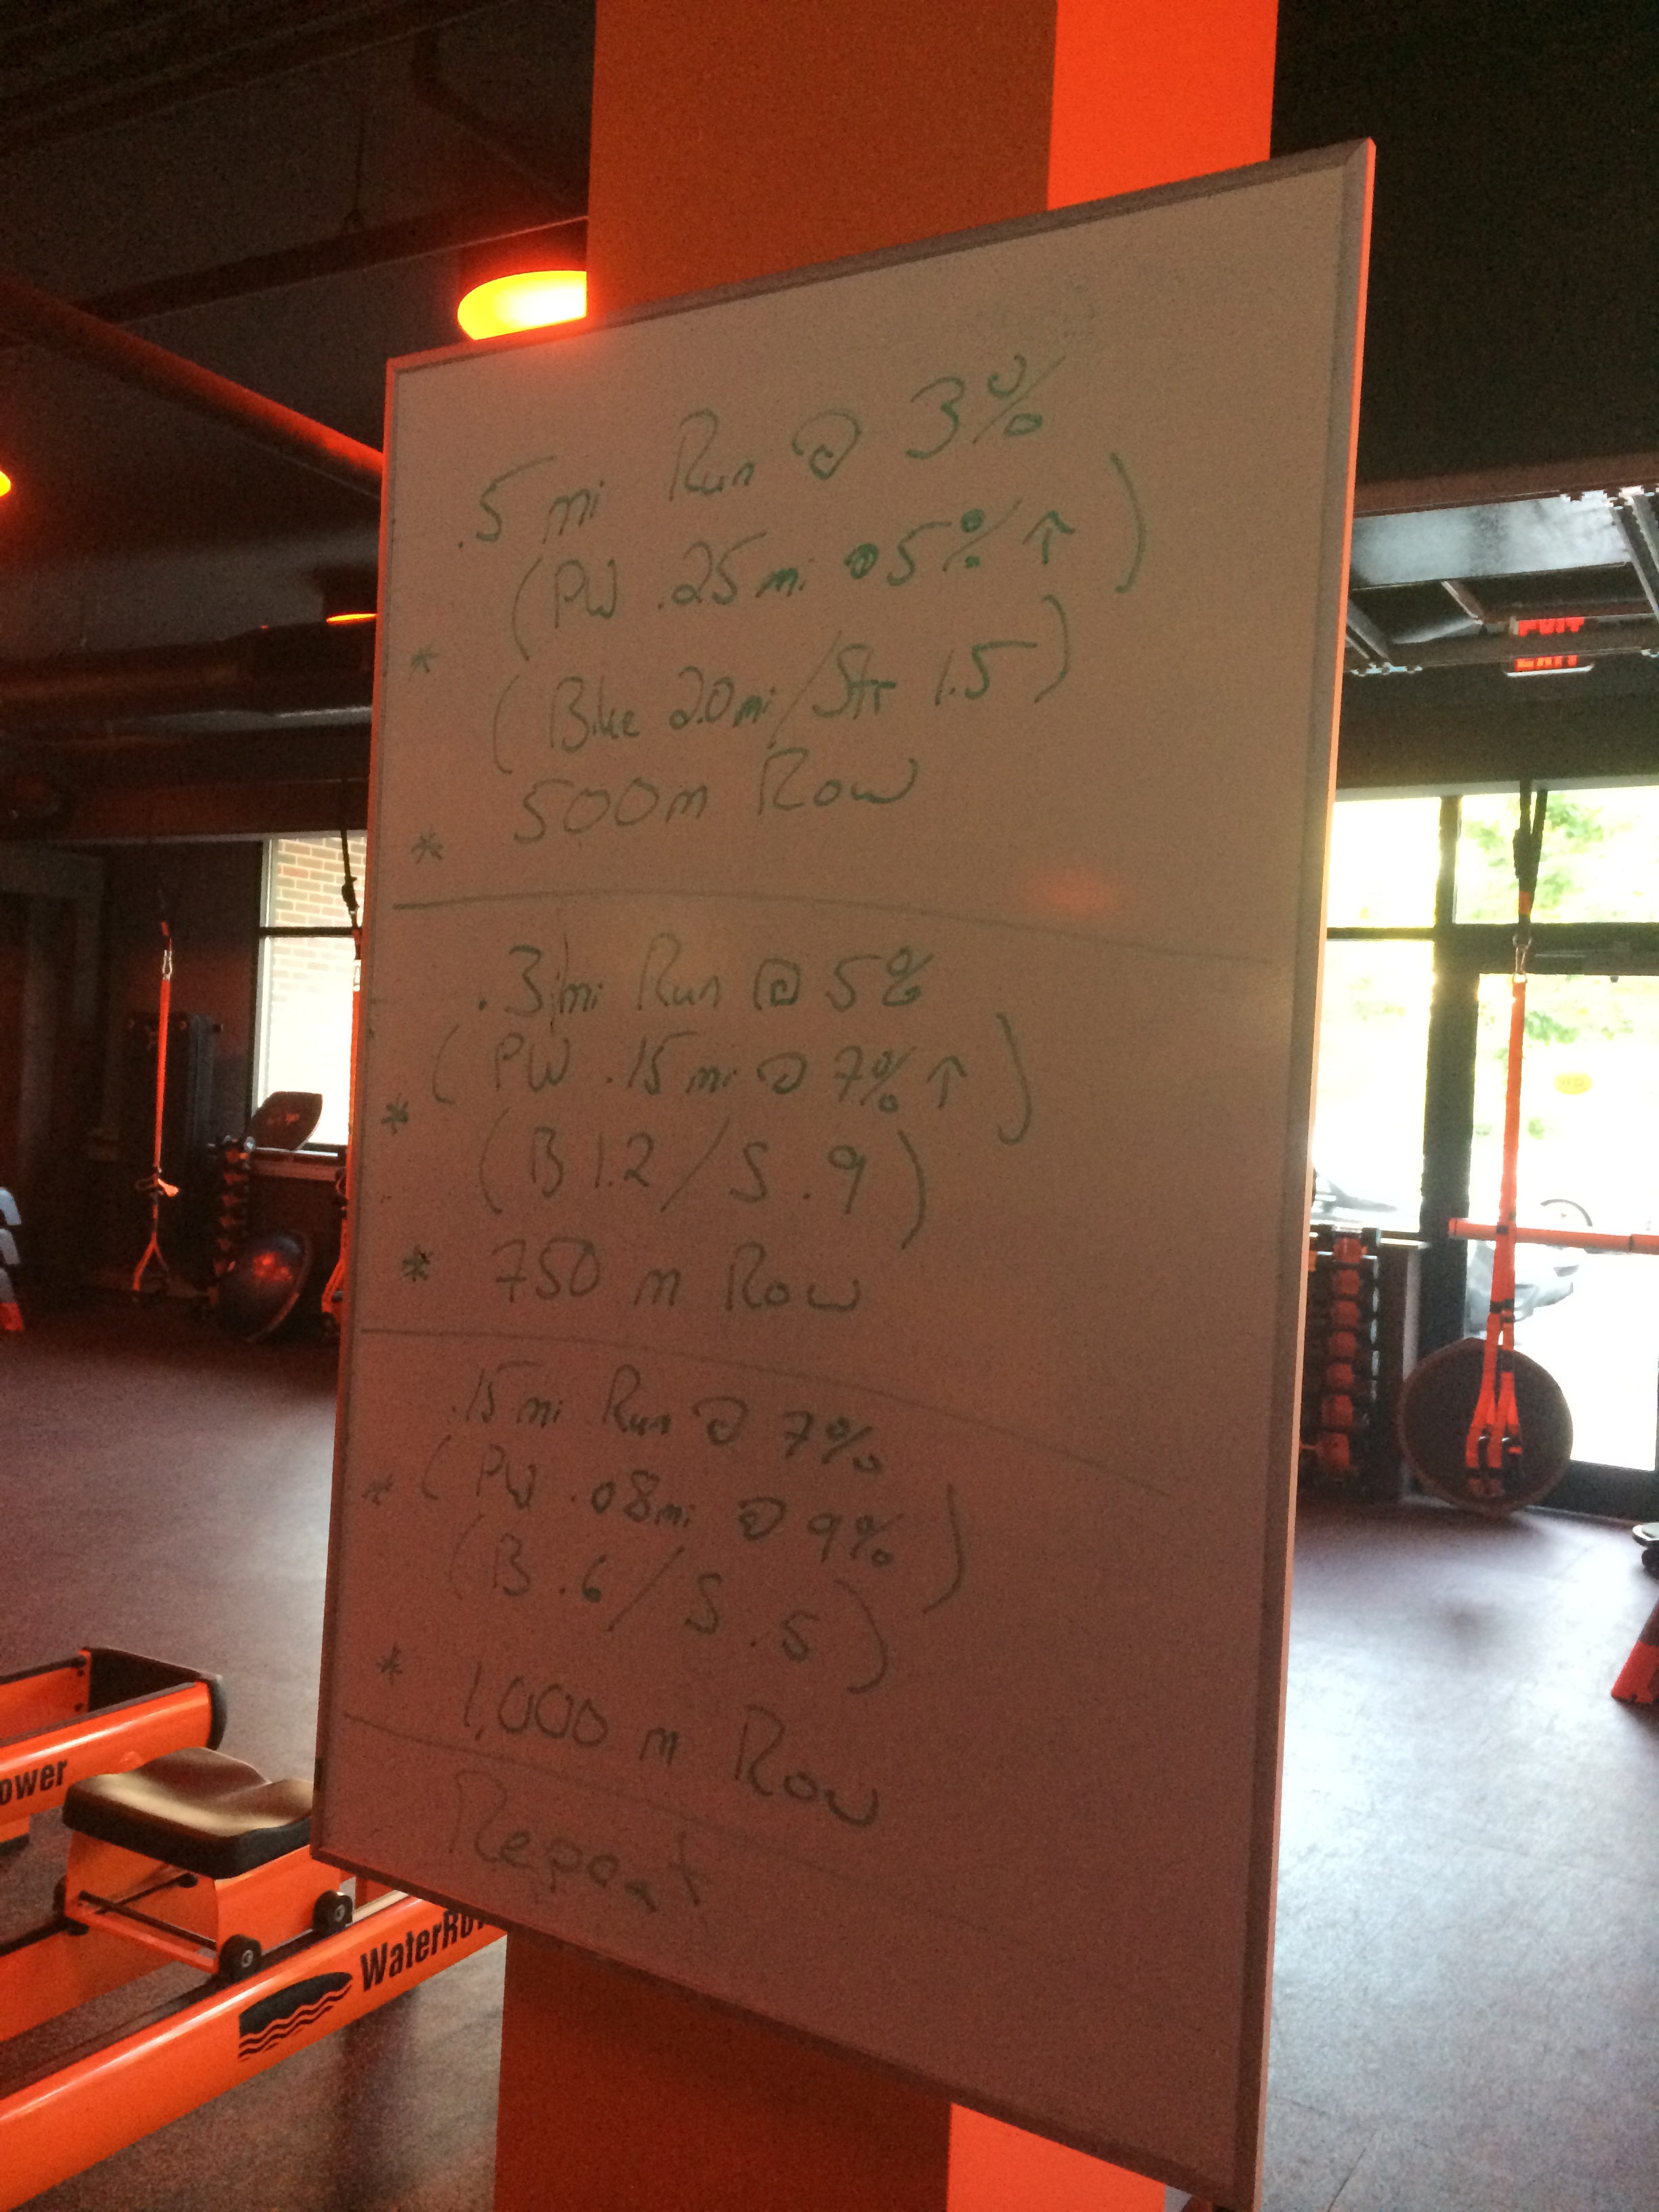 .5 mi Run @ 3%
(PW .25 mi @ 5% ↑)
* (Bike 2.0mi/Str 1.5)
* 500m Row
.3 mi Run @ 5%
(PW .15 mi @ 7% ↑)
* (B 1.2 / S .9)
* 750 m Row
.15 mi Run @ 7%
* (PW .08mi @ 9%)
(B .6 / S .5)
* 1,000 m Row
Repeat
EXIT
ower
WaterRow